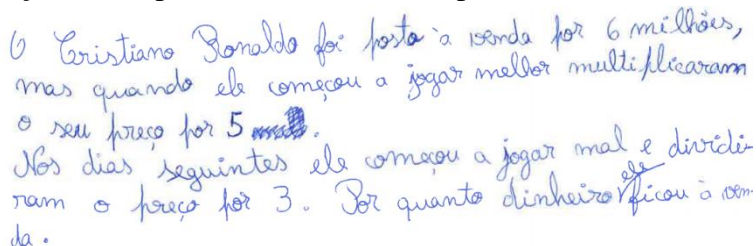 O Cristiano Ronaldo foi posto à venda por 6 milhões,
mas quando ele começou a jogar melhor multiplicaram
o seu preço por 5.
Nos dias seguintes ele começou a jogar mal e dividi-
ram o preço por 3. Por quanto dinheiro ele ficou à ven-
da.